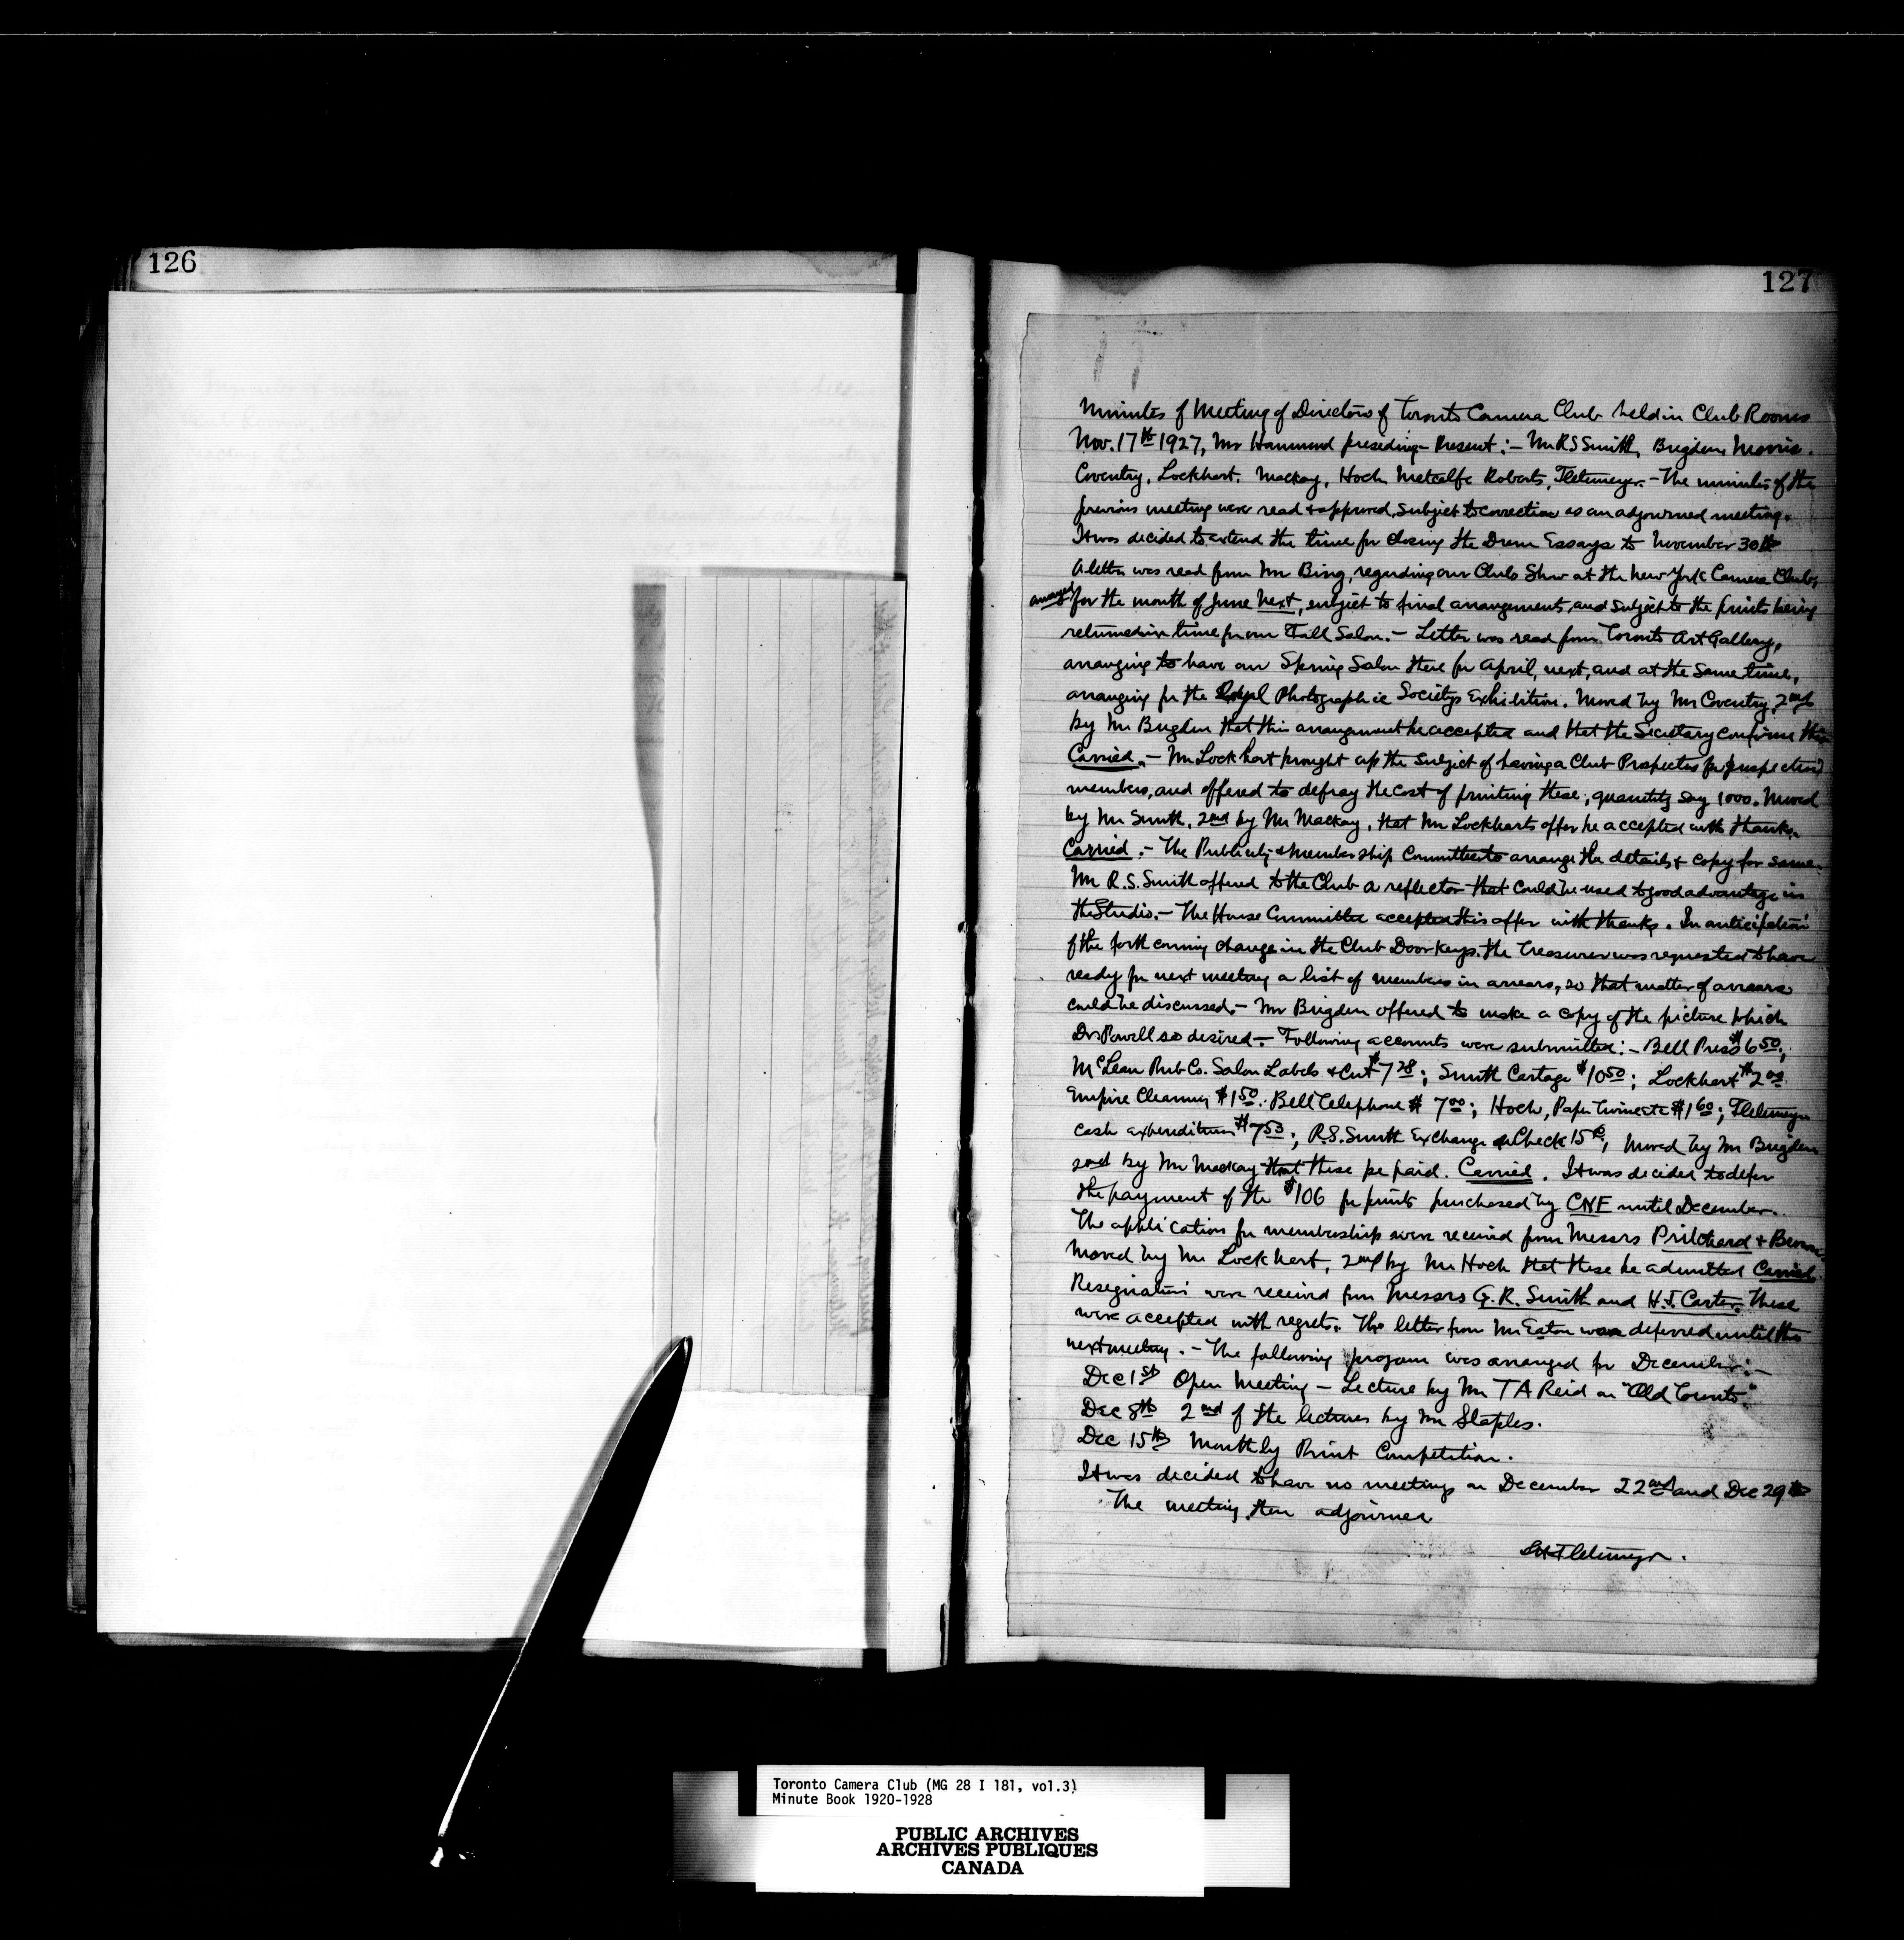 126
127
Minutes of Meeting of Directors of Toronto Camera Club held in Club Rooms
Nov. 17th 1927, Mr Hammond presiding - Present :- Mr R S Smith, Brigden, Morris.
Coventry, Lockhart, Mackay, Hoch Metcalfe Roberts, Fletemeyer. - The minutes of the
previous meeting were read & approved, subject to correction as an adjourned meeting.
It was decided to extend the time for closing the Drem Essays to November 30th
A letter was read from Mr Bing, regarding our Club Show at the New York Camera Club,
arranged for the month of June next, subject to final arrangements, and subject to the prints being
returned in time for our Fall Salon. - Letter was read from Toronto Art Gallery,
arranging to have our Spring Salon there for April, next, and at the same time,
arranging for the Royal Photographic Societys Exhibition. Moved by Mr Coventry, 2nd
by Mr Brigden that this arrangement be accepted and that the Secretary confirm this
Carried. - Mr Lockhart brought up the subject of having a Club Prospectus for prospective
members, and offered to defray the cost of printing these, quantity say 1000. Moved
by Mr Smith, 2nd by Mr Mackay, that Mr Lockharts offer be accepted with thanks.
Carried. - The Publicity & Membership Committee to arrange the details & copy for same.
Mr R.S. Smith offered to the Club a reflector that could be used to good advantage in
the Studio. - The House Committee accepted this offer with thanks. In anticipation
of the forthcoming change in the Club Door keys, the Treasurer was requested to have
ready for next meeting a list of members in arrears, so that matter of arrears
could be discussed. - Mr Brigden offered to make a copy of the picture which
Dr Powell so desired - Following accounts were submitted :- Bell Press $6.50;
McLean Pub Co. Salon Labels & Cut $7.28; Smith Cartage $10.50; Lockhart $2.00
Empire Cleaning $1.50. Bell Telephone $7.00; Hoch, Paper twine etc $1.60; Fletemeyer
cash expenditure $7.53; R.S. Smith Exchange Check 15c, Moved by Mr Brigden
2nd by Mr Mackay that these be paid. Carried. It was decided to defer
the payment of the $106 for prints purchased by CNE until December.
The application for membership were received from Messrs Pritchard & Brown
Moved by Mr Lockhart, 2nd by Mr Hoch that these be admitted Carried.
Resignation were received from Messrs G. R. Smith and H.J. Carter. These
were accepted with regrets. The letter from Mr Eaton was deferred until the
next meeting. - The following program was arranged for December :-
Dec 1st Open Meeting - Lecture by Mr T A Reid on "Old Toronto."
Dec 8th 2nd of the lectures by Mr Staples.
Dec 15th Monthly Print Competition.
It was decided to have no meetings on December 22nd and Dec 29th
The meeting then adjourned
Fletemeyer.
Toronto Camera Club (MG 28 I 181, vol.3)
Minute Book 1920-1928
PUBLIC ARCHIVES
ARCHIVES PUBLIQUES
CANADA